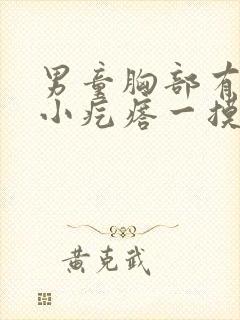 男童胸部有
小疙瘩一摸
黄克武